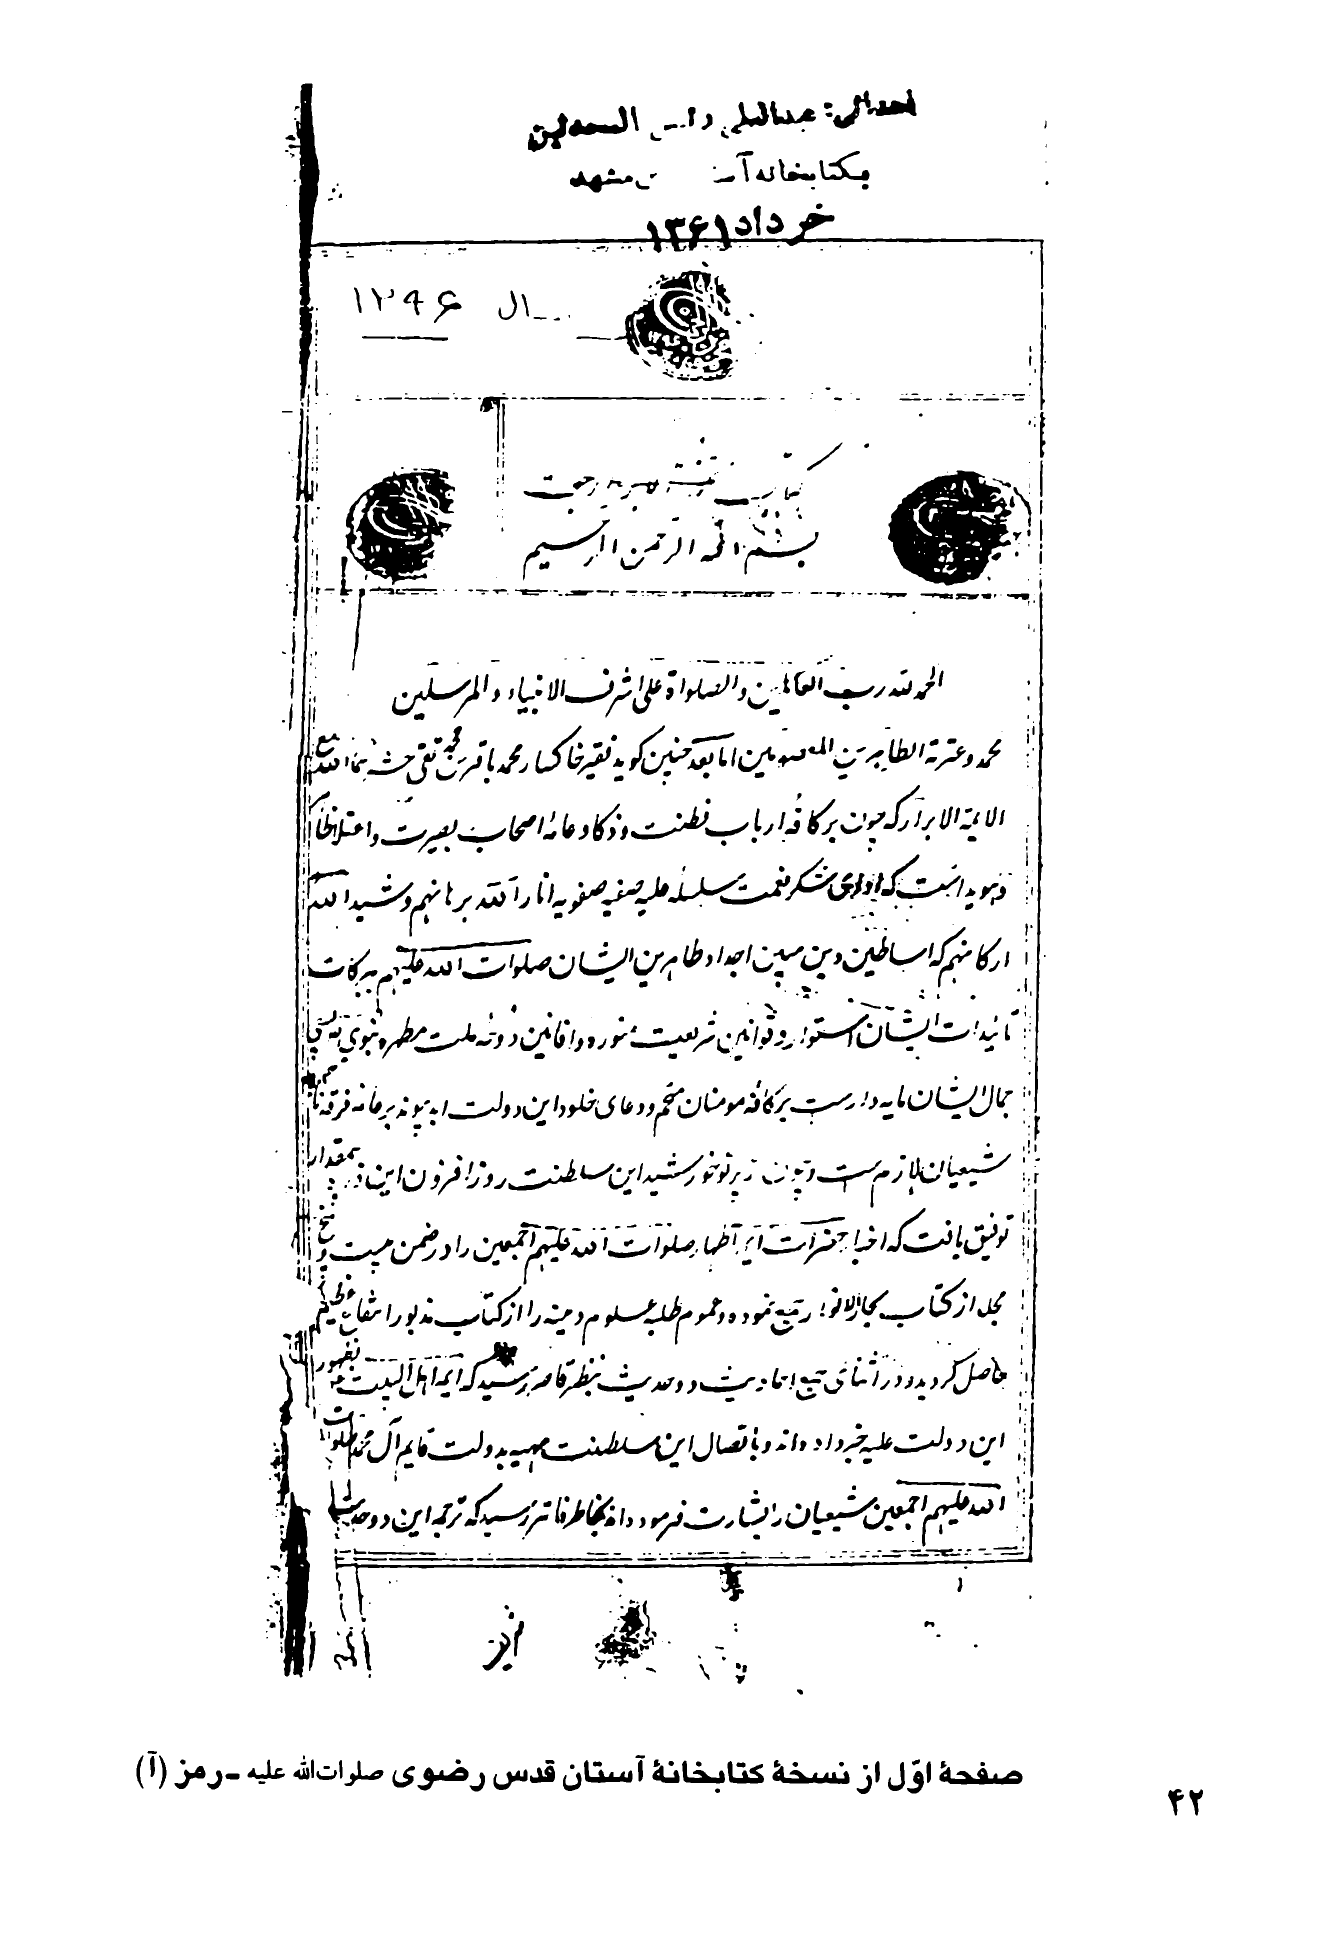 اهدائی: عبدالعلی
بکتابخانه آ مشهد
خرداد ۱۳۶۱
۱۲۹۶
کتاب رجعت
بسم الله الرحمن الرحیم
الحمد لله رب العالمین والصلواة علی اشرف الانبیاء والمرسلین
محمد وعترته الطاهرین المعصومین اما بعد چنین کوید فقیر خاکسار محمد باقر بن محمد تقی حشرهما الله مع
الائمة الابرار که چون بر کافه ارباب فطنت وذکا وعامهٔ اصحاب بصیرت واعتلا ظاهر
وهویداست که ادای شکر نعمت سلسله علیه صفیه صفویه انار الله برهانهم وشید الله
ارکانهم که اساطین دین مبین اجداد طاهرین ایشان صلوات الله علیهم ببرکات
تائیدات ایشان استوار وقوانین شریعت منوره وافانین دوحه ملت مطهره نبوی
جمال ایشان مایه دارست بر کافه مومنان متحتم ودعای خلود این دولت ابد پیوند بر عامه فرقه
شیعیان لازم است وچون از پرتو خورشید این سلطنت روز افزون این ذره بیمقدار
توفیق یافت که اخبار حضرات ائمه اطهار صلوات الله علیهم اجمعین را در ضمن بیست و پنج
مجلد از کتاب بحارالانوار جمع نموده وعموم طلبه علوم دینیه را از کتاب مذبور انتفاع عظیم
حاصل کردیده ودر اثنای جمع احادیث دو حدیث بنظر قاصر رسید که ائمه اهل البیت بظهور
این دولت علیه خبر داده اند وباتصال این سلطنت بهیه بدولت قایم آل محمد صلوات
الله علیهم اجمعین شیعیان را بشارت فرموده اند بخاطر فاتر رسید که ترجمه این دو حدیث
صفحهٔ اوّل از نسخهٔ کتابخانهٔ آستان قدس رضوی صلوات‌الله علیه ـ رمز (آ)
۴۲